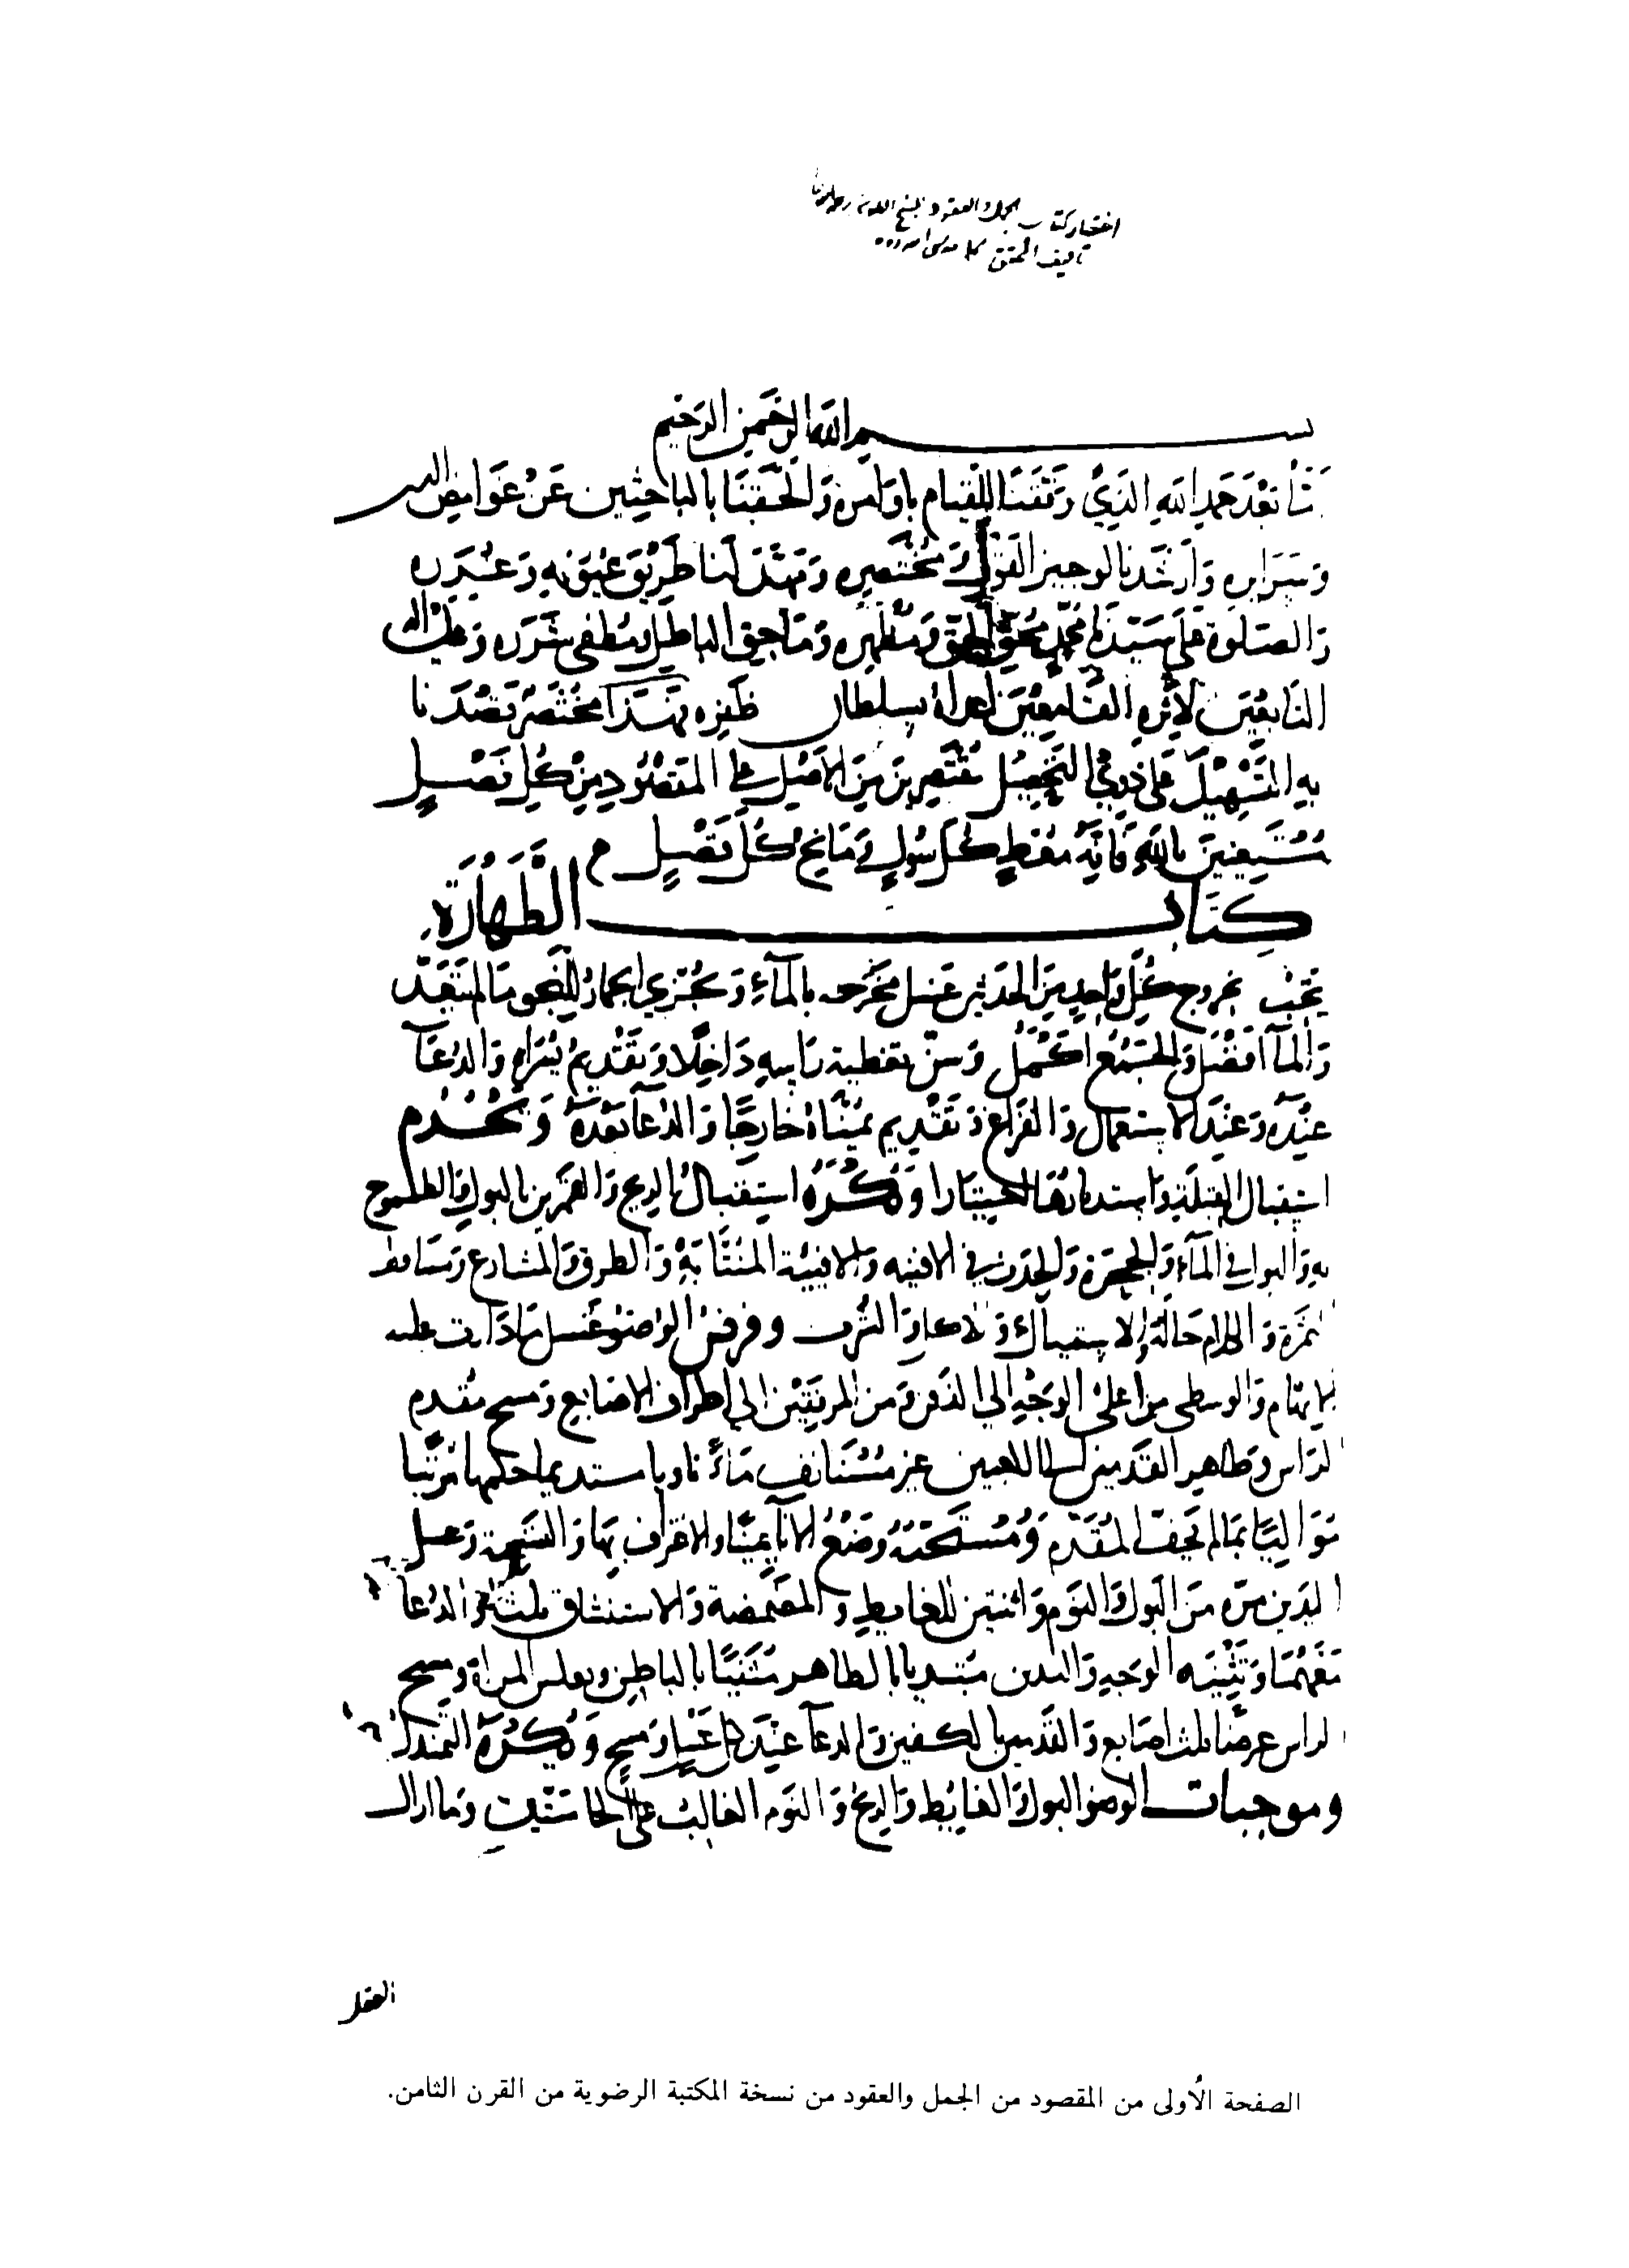 اختيار كتاب الجمل والعقود للشيخ
تاليف المحقق
بسم الله الرحمن الرحيم
بعد حمد الله الذي وفقنا للقيام باوامره وألحقنا بالباحثين عن غوامض
وأرشدنا لوجيز القول ومختصره ومهد لنا طريق
والصلوة على سيدنا محمد محق الحق ومظهره وماحق الباطل ومطفى شرره وعلى اله
التابعين لأثره القامعين أعداه بسلطان ظفره فهذا مختصر قصدنا
به التسهيل على ذوي التحصيل مقتصرين من الأصل على المقصود من كل فصل
مستعينين بالله فانه معطي كل سول ومانح كل فضل
كتاب الطهارة
يجب بخروج كل واحد من الحدثين غسل مخرجه بالماء ويجتزي للنجو ما لم يتعد
والمآ افضل والجمع اكمل وسن تغطية راسه داخلا وتقديم يسراه والدعآ
عنده وعند الاستعمال والفراغ وتقديم يمناه خارجا والدعآ بعده ويحرم
استقبال القبلة واستدبارها اختيارا ويكره استقبال الريح والقمرين بالبول والطموح
به والبول في المآء والجحرة والحدث في الافنيه والافيية المنتابة والطرق والمشارع ومساقط
الثمرة والكلام حالة والاستياك والاكل والشرب وفرض الوضؤ غسل مادارت عليه
الابهام والوسطى من اعلى الوجه الى الذقن ومن المرفقين الي اطراف الاصابع ومسح مقدم
الراس وظاهر القدمين الى الكعبين غير مستانف مآء ناويا مستديما حكمها مرتبا
مواليا بما لم يجف المقدم ومستحبه وضع الانآ يمينا والاغتراف بها والتسمية وغسل
اليدين مرة من البول والنوم واثنتين للغايط والمضمضة والاستنشاق ثلثا والدعآ
معهما وتثنيه الوجه واليدين مبتديا بالظاهر مثنيا بالباطن وبعكس المراة ومسح
الراس عرضا بثلث اصابع والقدمين بالكفين والدعآ عند كل غسل ومسح ويكره التمندل
وموجبات الوضو البول والغايط والريح والنوم الغالب على الحاستين وما ازال
العقل
الصفحة الأولى من المقصود من الجمل والعقود من نسخة المكتبة الرضوية من القرن الثامن.